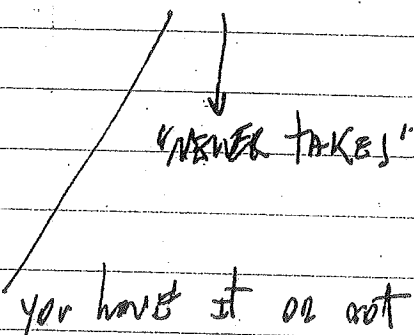 "NEWER TAKES"
you have it or not